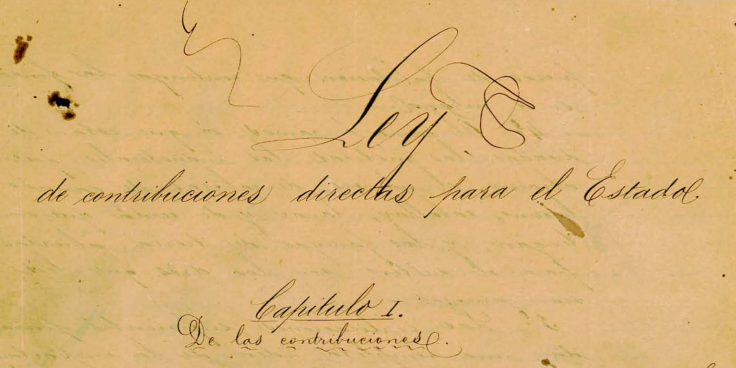 Ley
de contribuciones directas para el Estado.
Capitulo I.
De las contribuciones.